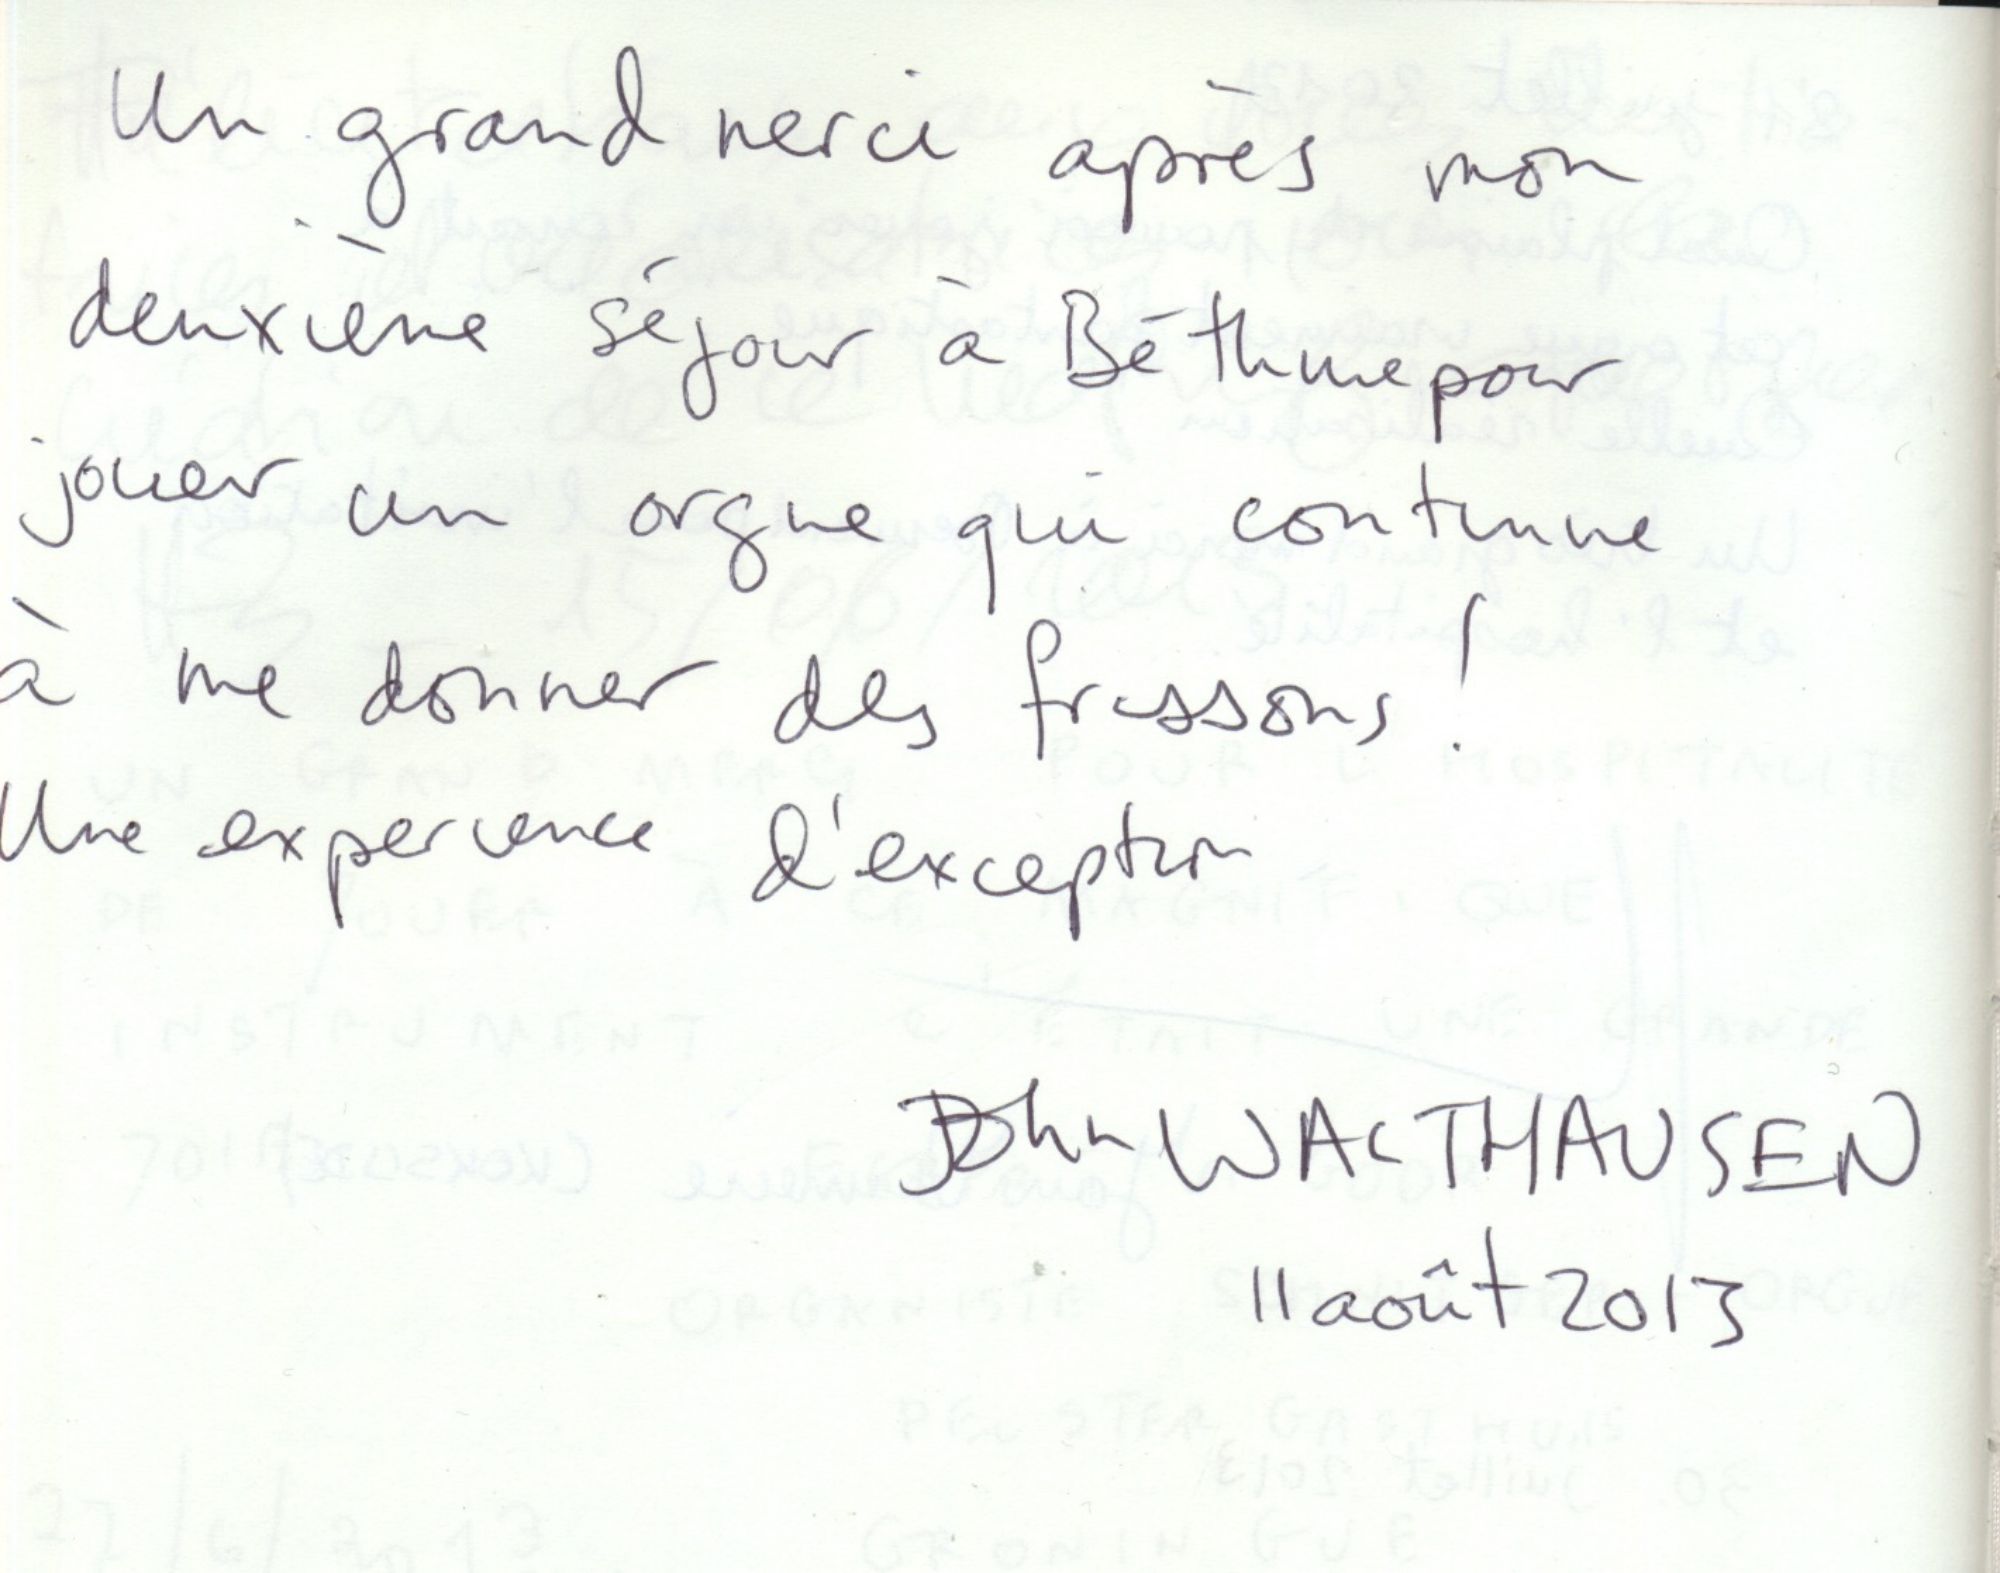 Un grand merci après mon
deuxième séjour à Béthune pour
jouer un orgue qui continue
à me donner des frissons !
Une experience d'exception
John WALTHAUSEN
11 août 2013